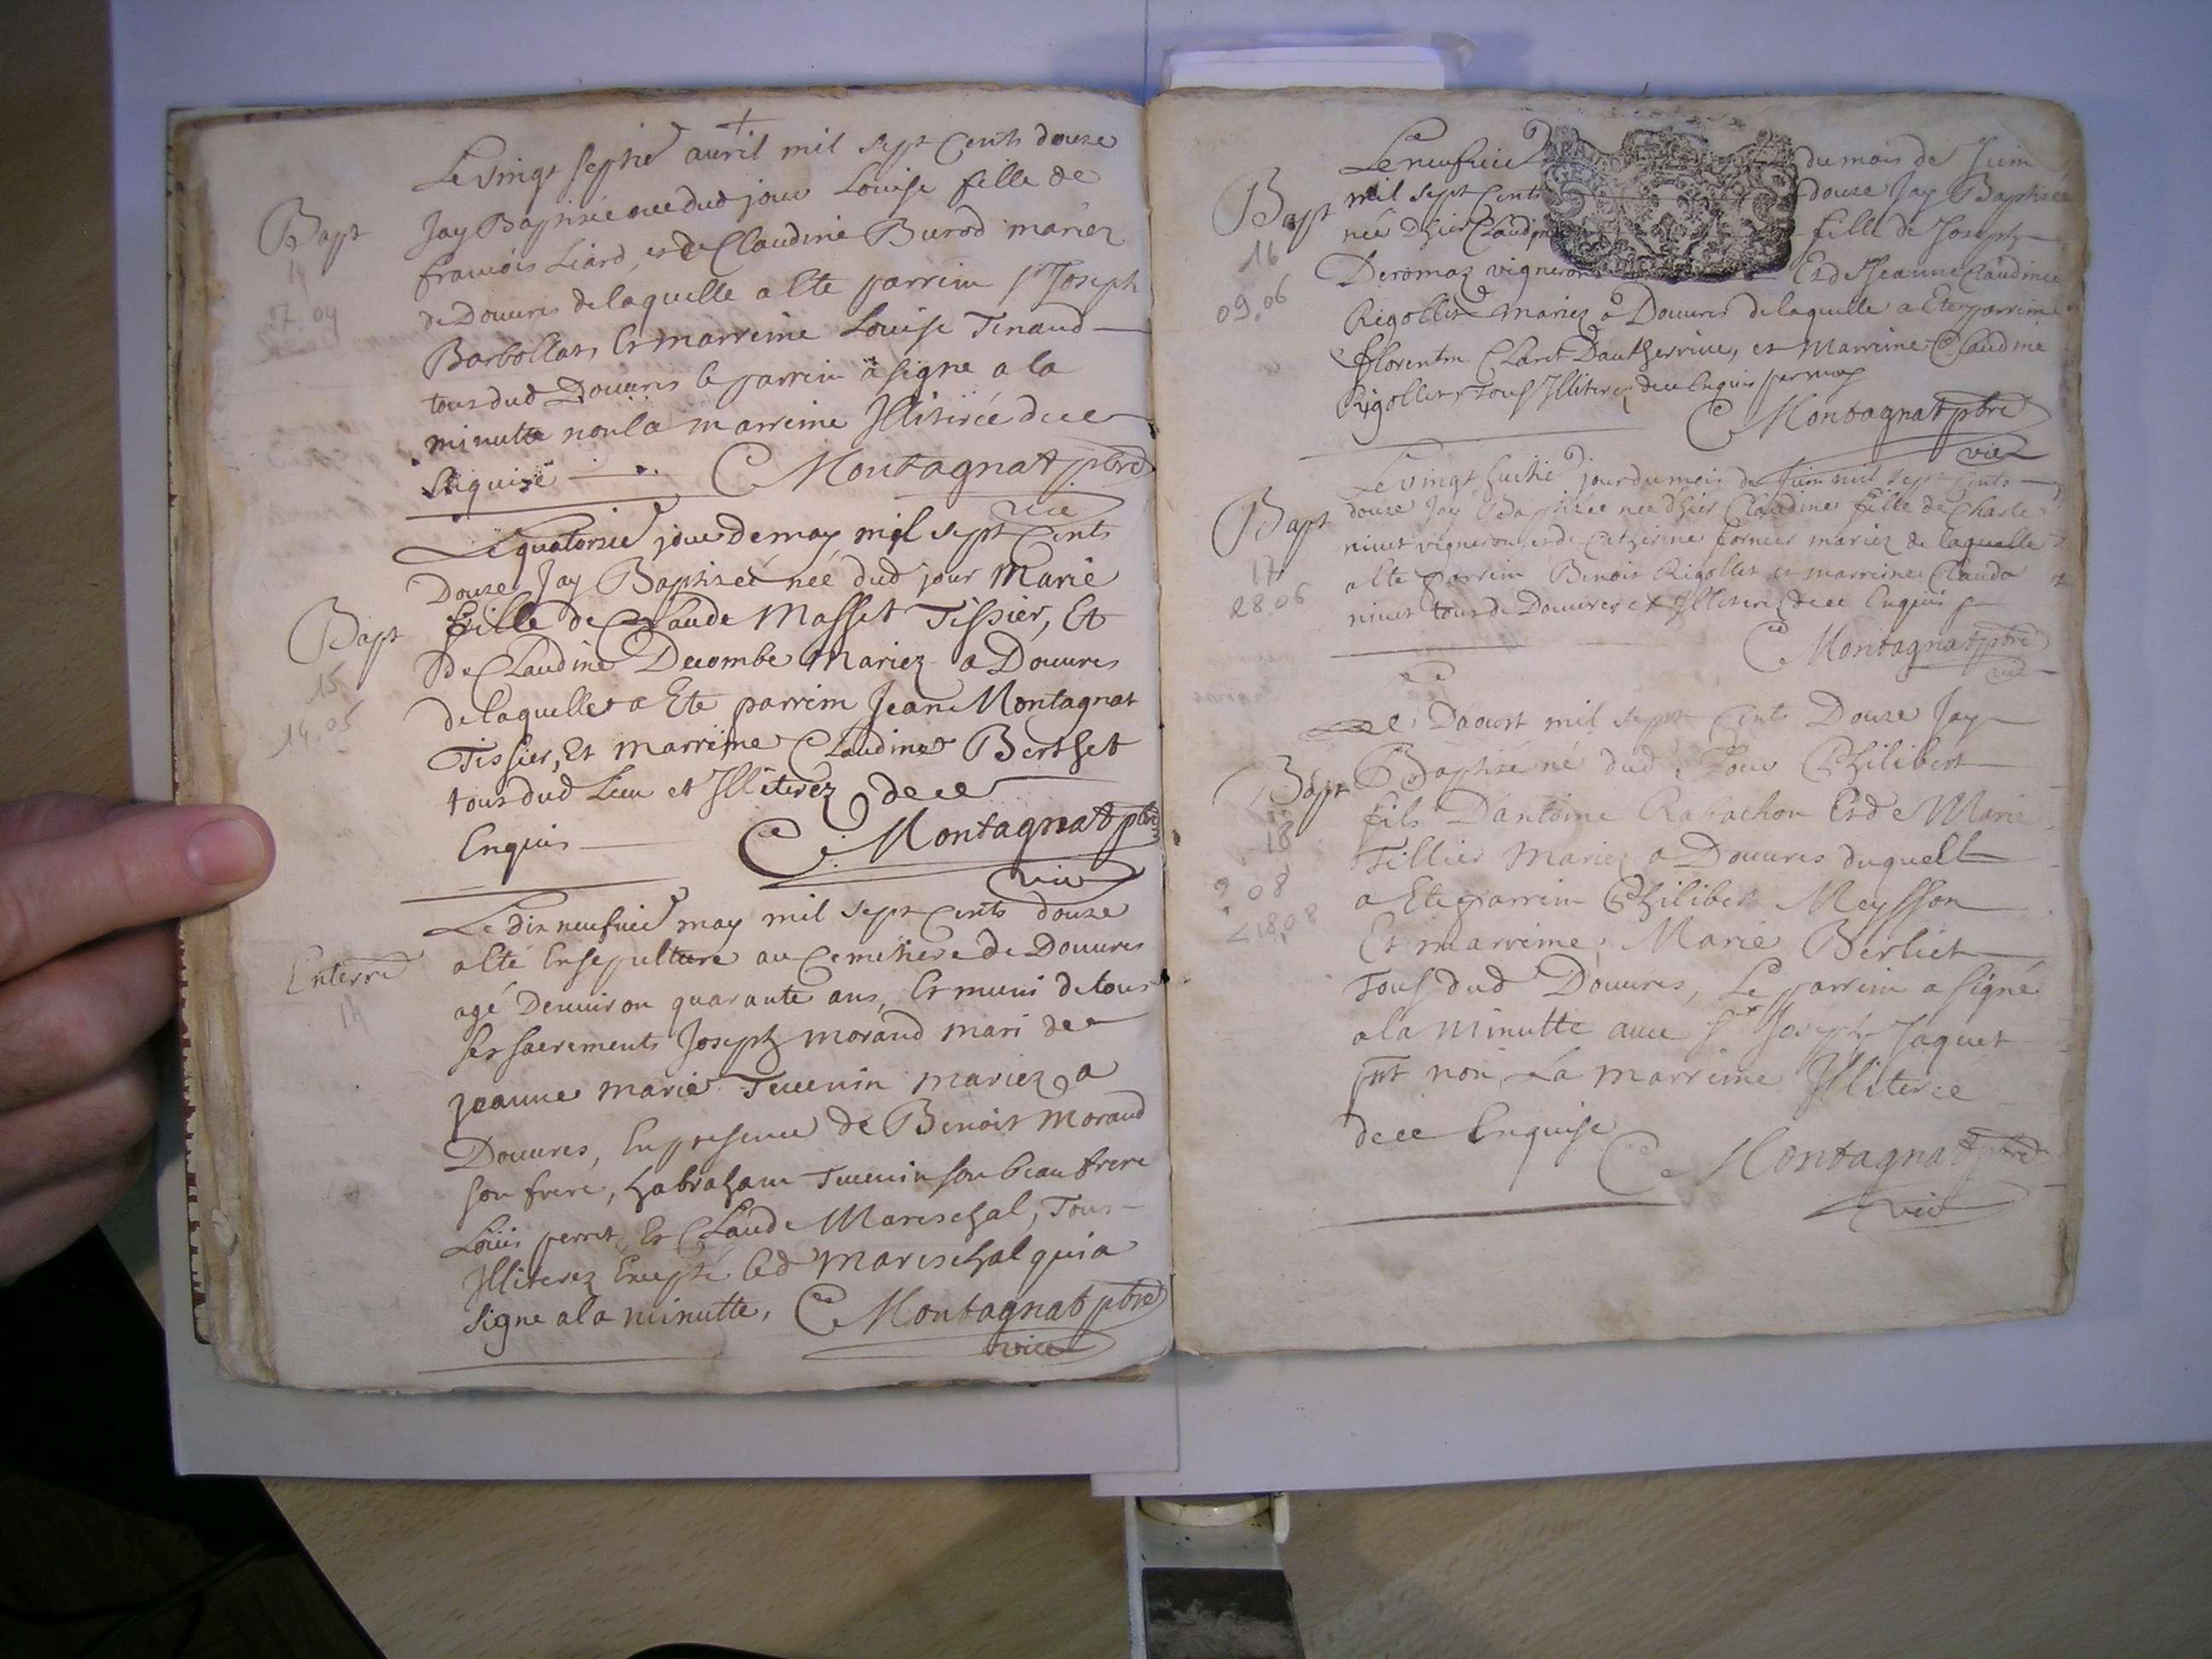 Le vingt septie avril mil sept cents douze
Bapt
14
27.04
Jay Baptisée nee dud jour Louise fille de
francois Liard, et de Claudine Burod mariez
de Douvres de laquelle a Ete parrein sr Joseph
Barbollat, Et marreine Louise Tenand
tous dud Douvres le parrein a signe a la
minutte non la marreine Illiterée de ce
Enquise C Montagnat pbre
vic
Le quatorzie jour de may mil sept Cents
Douze Jay Baptisée née dud jour Marie
Bapt
15
14.05
fille de Claude Masset Tissier, Et
de Claudine Decombe Mariez a Douvres
de laquelle a Ete parrein Jean Montagnat
Tissier, Et marreine Claudine Berthet
tous dud Lieu et Illiterez de ce
Enquis C Montagnat pbre
vic
Le dix neufvie may mil sept Cents douze
Enterré
a Eté Ensepulture au Cemetiere de Douvres
agé Denviron quarante ans, Et muni de tous
ses sacrements Joseph morand mari de
jeanne marie Tuvenin mariez a
Douvres, En presence de Benoit Morand
son frere, habraham Tuvenin son beau frere
Louis perret, Et Claude Mareschal, Tous
Illiterez Excepté led Mareschal qui a
signe a la minutte, C Montagnat pbre
vic
Le neufvie du mois de Juin
Bapt
16
09.06
mil sept Cents douze Jay Baptisée
née Dhier Claudine fille de Joseph
Deromaz vigneron Et de Jeanne Claudine
Rigollet mariez a Douvres de laquelle a Ete parrein
florentin Claret Dautherrive, et Marreine Claudine
Rigollet, tous Illiterez de ce Enquis par moy
C Montagnat pbre
vic
Le vingt huitie jour du mois de Juin mil sept Cents
Bapt
17
28.06
douze Jay Baptisée nee dhier Claudine fille de Charle
nivet vigneron, et de Catherine fornier mariez de laquelle
a Ete parrein Benoit Rigollet et marreine Clauda
nivet tous de Douvres et Illiterez de ce Enquis
C Montagnat pbre
vic
Daoust mil sept Cents Douze Jay
Bapt
18
08
18.08
Baptisé né dud Jour Philibert
fils Dantoine Rabachon Et de Marie
Tillier Mariez a Douvres duquell
a Ete parrein Philibert Meysson
Et marreine, Marie Berliet
Tous dud Douvres, Le parrein a signé
a la Minutte avec sr Joseph Jaquet
pnt non La marreine Illiteree
de ce Enquise
C Montagnat pbre
vic